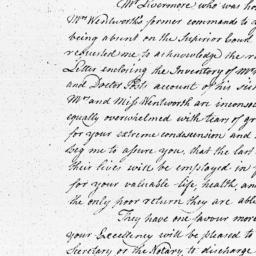 Mr. Livermore who was hon
Mrs. Wentworths former commands to
being absent on the Superior Court
requested me to acknowledge the re
Letter enclosing the Inventory of Mr
and Doctor account of his
Mrs. and Miss Wentworth are inconso
equally overwhelmed with tears of gr
for your extreme condescension and
beg me to assure you, that the last
their lives will be employed in
for your valuable life, health, am
the only poor return they are able
They have one favour more
your Excellency will be pleased to
Secretary or the Notary, to discharge